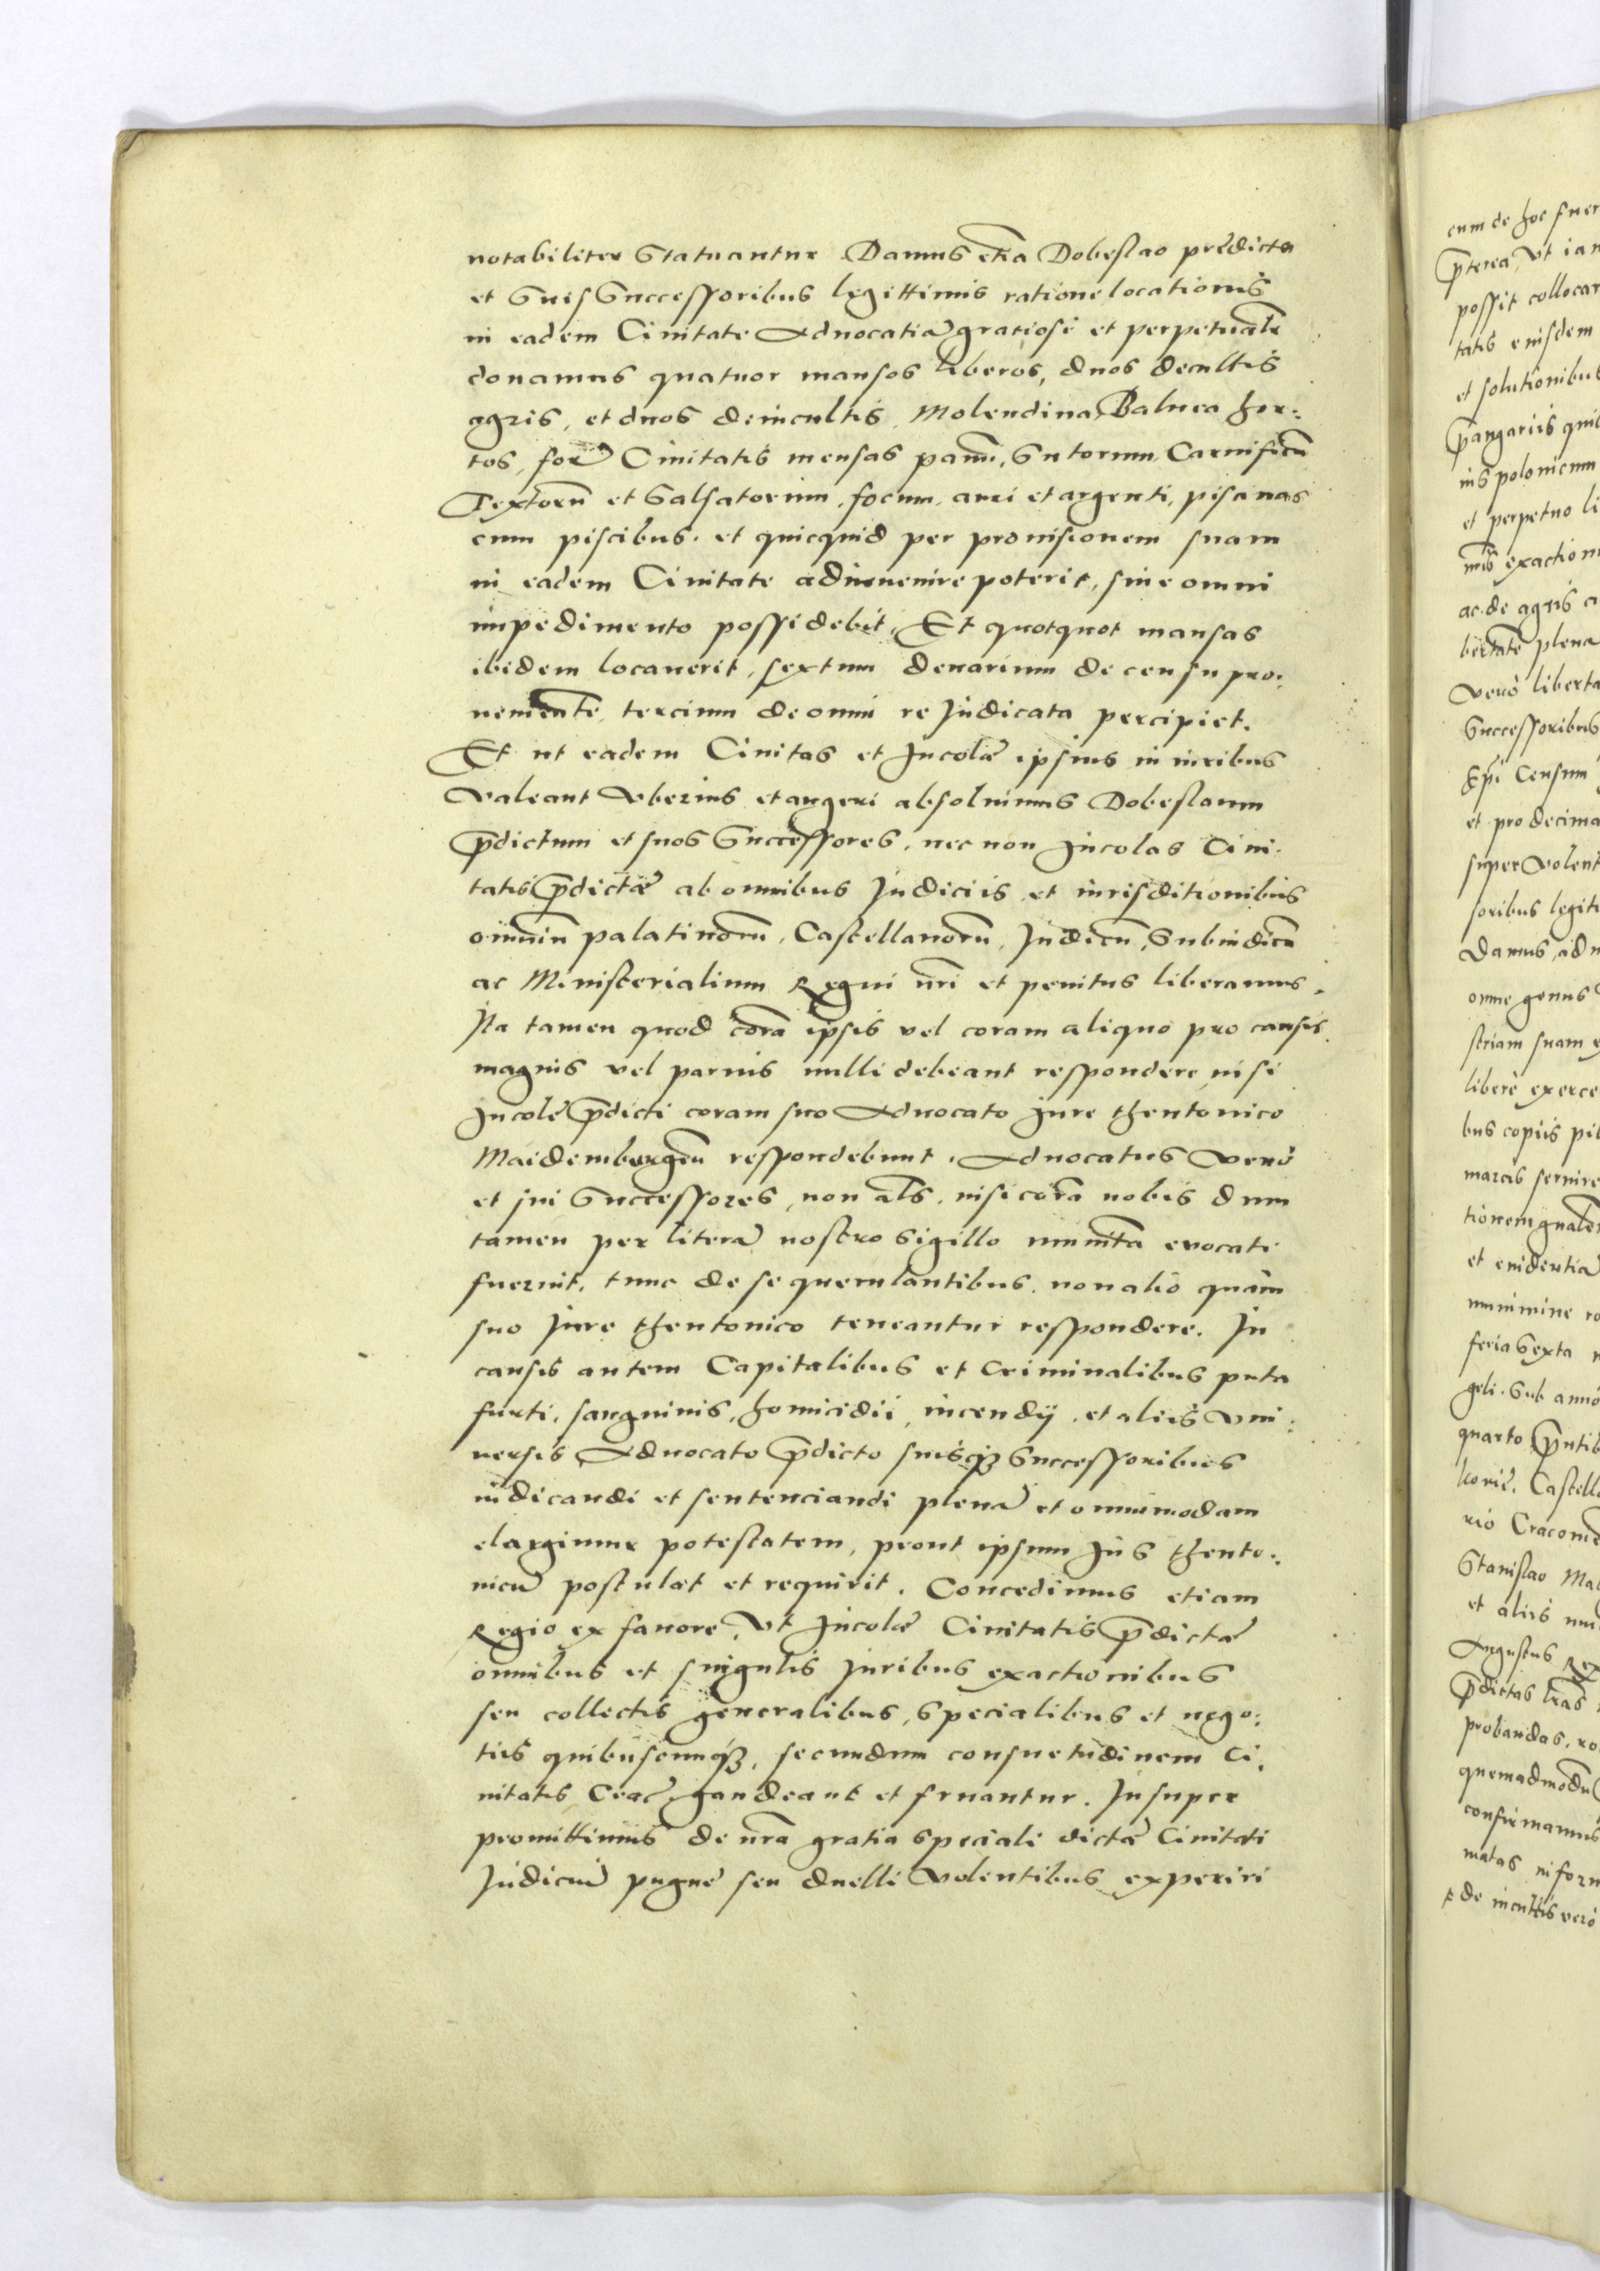 notabiliter Statuantur Damus etiã Dobeslao predicto
et Suis Successoribus legittimis ratione locationis
in eadem Ciuitate Aduocatiã gratiose et perpetualr̃
donamus quatuor mansos liberos, duos de cultis
agris, et duos de incultis, Molendina, Balnea hor:
tos, forũ Ciuitatis mensas panũ, Sutorum, Carnificũ
Textorũ et Salsatorum, focum, auri et argenti, piscinas
cum piscibus, et quicquid per prouisionem suam
in eadem Ciuitate adinuenire poterit, sine omni
impedimento possidebit, Et quotquot mansas
ibidem locauerit, sextum denarium de censu pro:
uenientẽ, tercium de omni re Judicata percipiet.
Et ut eadem Ciuitas et Incolæ ipsius in iuribus
Valeant Vberius et augeri absoluimus Dobeslaum
p̃dictum et suos Successores, nec non Incolas Ciui:
tatis p̃dictæ ab omnibus Judiciis et iurisditionibus
omnium palatinorũ, Castellanorũ, Judicũ, Subiudicũ
ac Ministerialium Regni nr̃i et penitus liberamus.
Ita tamen quod corã ipsis vel coram aliquo pro causis
magnis vel paruis nulli debeant respondere, nisi
Incole p̃dicti coram suo Aduocato Jure theutonico
Maidemburgeñ respondebunt. Aduocatus Verò
et sui Successores, non al̃s, nisi corã nobis dum
tamen per literã nostro Sigillo munitã euocati
fuerint, tunc de se querulantibus, non alio quàm
suo Jure theutonico teneantur respondere. In
causis autem Capitalibus et Criminalibus puta
furti, sanguinis, homicidii, incendij, et aliis Vni:
uersis Aduocato p̃dicto suisq; Successoribus
iudicandi et sentenciandi plenã et omnimodam
elargimur potestatem, prout ipsum Jus theuto:
nicũ postulat et requirit. Concedimus etiam
Regio ex fauore, Vt Incolæ Ciuitatis p̃dictæ
omnibus et singulis Juribus exactionibus
seu collectis generalibus, Specialibus et nego:
tiis quibuscumq;, secundum consuetudinem Ci:
uitatis Crac̃ gaudeant et fruantur. Insuper
promittimus de nr̃a gratia speciali dictæ Ciuitati
Judiciũ pugne seu duelli Volentibus experiri
cum de hoc fuer
p̃terea, Vt ian
possit collocar
tatis eiusdem
et solutionibus
p̃angariis qui
et perpetuo li
exaction
ac de agris
plena
Verò liberta
Successoribus
Ep̃i Censum
et pro decima
super Volent
soribus legiti
Damus, ad
omne genus
striam suam
liberè exerce
bus copiis
marcis seruire
et euidentiã
munimine ro
feria Sexta
geli. Sub anno
quarto p̃ntib
Castell
Stanislao Mal
et aliis
Augustus Rex
p̃dictas lr̃as
probandas, ro
quemadmodũ
confirmamus
matas
de incultis verò